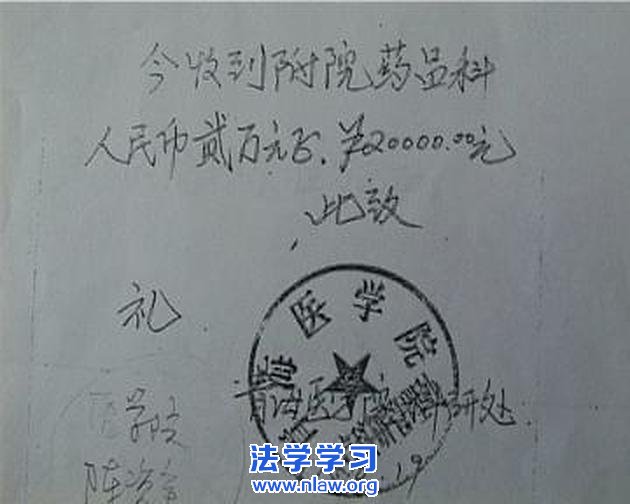 今收到附院药品科
人民币贰万元正.￥20000.00元
此致
礼
医学院
医学院科研处
19
法学学习
www.nlaw.org